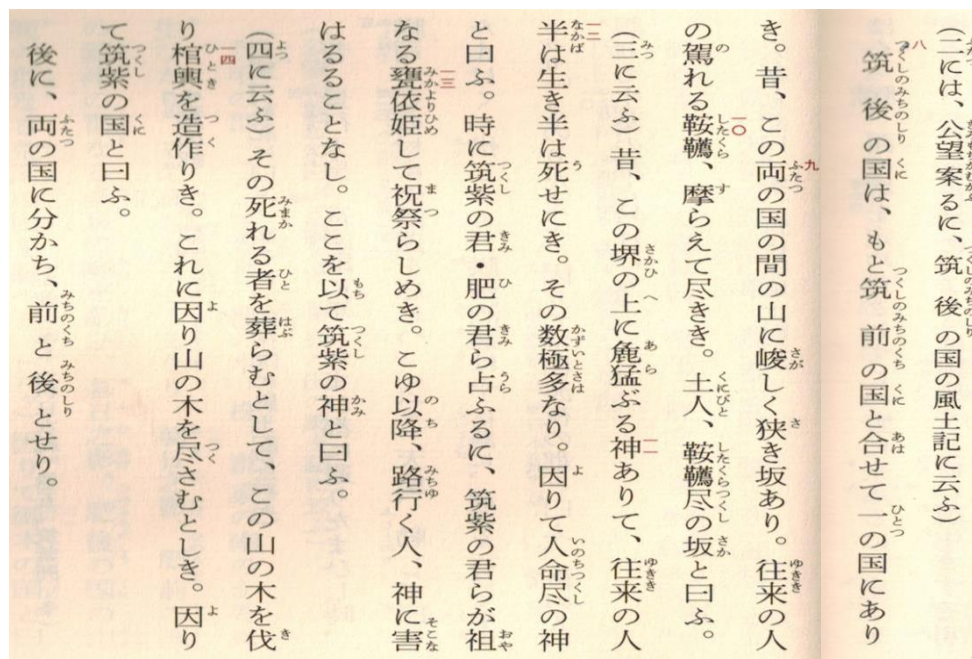 (二には、公望案るに、筑後の国の風土記に云ふ)
筑後の国は、もと筑前の国と合せて一の国にあり
き。昔、この両の国の間の山に峻しく狭き坂あり。往来の人
の駕れる鞍韉、摩らえて尽きき。土人、鞍韉尽の坂と曰ふ。
(三に云ふ)昔、この堺の上に麁猛ぶる神ありて、往来の人
半は生き半は死せにき。その数極多なり。因りて人命尽の神
と曰ふ。時に筑紫の君・肥の君ら占ふるに、筑紫の君らが祖
なる甕依姫して祝祭らしめき。こゆ以降、路行く人、神に害
はるることなし。ここを以て筑紫の神と曰ふ。
(四に云ふ)その死れる者を葬らむとして、この山の木を伐
り棺輿を造作りき。これに因り山の木を尽さむとしき。因り
て筑紫の国と曰ふ。
後に、両の国に分かち、前と後とせり。